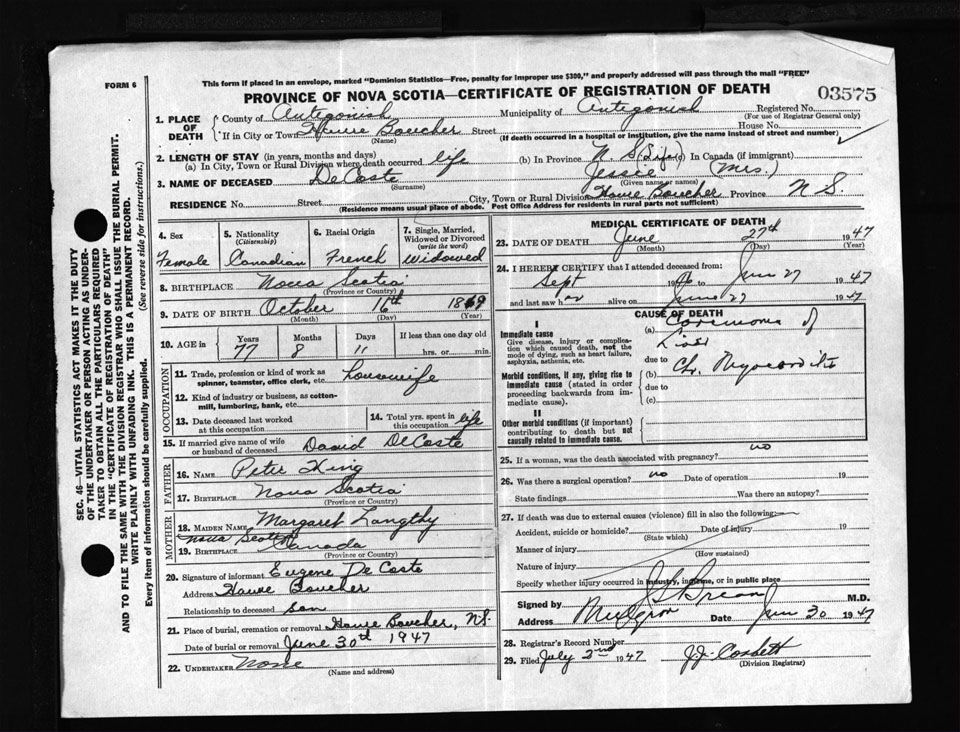 FORM 6
This form if placed in an envelope, marked "Dominion Statistics—Free, penalty for improper use $300," and properly addressed will pass through the mail "FREE"
PROVINCE OF NOVA SCOTIA—CERTIFICATE OF REGISTRATION OF DEATH
03575
1. PLACE OF DEATH
County of Antigonish Municipality of Antigonish Registered No.
(For use of Registrar General only)
If in City or Town Havre Boucher Street House No.
(Name) (If death occurred in a hospital or institution, give the name instead of street and number)
2. LENGTH OF STAY (in years, months and days)
(a) In City, Town or Rural Division where death occurred life (b) In Province N. S. (life) (c) In Canada (if immigrant)
3. NAME OF DECEASED De Coste Jessie (Mrs.)
(Surname) (Given name or names)
RESIDENCE No. Street City, Town or Rural Division Havre Boucher Province N S.
(Residence means usual place of abode. Post Office Address for residents in rural parts not sufficient)
4. Sex
Female
5. Nationality (Citizenship)
Canadian
6. Racial Origin
French
7. Single, Married, Widowed or Divorced (write the word)
Widowed
8. BIRTHPLACE Nova Scotia
(Province or Country)
9. DATE OF BIRTH October 16th 1869
(Month) (Day) (Year)
10. AGE in Years Months Days If less than one day old
77 8 11 hrs. or min.
OCCUPATION
11. Trade, profession or kind of work as spinner, teamster, office clerk, etc. housewife
12. Kind of industry or business, as cotton-mill, lumbering, bank, etc.
13. Date deceased last worked at this occupation
14. Total yrs. spent in this occupation life
15. If married give name of wife or husband of deceased David De Coste
FATHER
16. NAME Peter King
17. BIRTHPLACE Nova Scotia
(Province or Country)
MOTHER
18. MAIDEN NAME Margaret Langthy
Nova Scotia
19. BIRTHPLACE Canada
(Province or Country)
20. Signature of informant Eugene De Coste
Address Havre Boucher
Relationship to deceased son
21. Place of burial, cremation or removal Havre Boucher, N.S.
Date of burial or removal June 30th 1947
22. UNDERTAKER None
(Name and address)
MEDICAL CERTIFICATE OF DEATH
23. DATE OF DEATH June 27th 1947
(Month) (Day) (Year)
24. I HEREBY CERTIFY that I attended deceased from:
Sept 19 to June 27 1947
and last saw her alive on June 27 1947
CAUSE OF DEATH
I
Immediate cause
Give disease, injury or complication which caused death, not the mode of dying, such as heart failure, asphyxia, asthenia, etc.
(a) Carcinoma of
due to
Morbid conditions, if any, giving rise to immediate cause (stated in order proceeding backwards from immediate cause).
(b) Ch. Myocarditis
due to
(c)
II
Other morbid conditions (if important) contributing to death but not causally related to immediate cause.
25. If a woman, was the death associated with pregnancy? no
26. Was there a surgical operation? no Date of operation 19
State findings Was there an autopsy?
27. If death was due to external causes (violence) fill in also the following:
Accident, suicide or homicide? Date of injury 19
(State which)
Manner of injury
(How sustained)
Nature of injury
Specify whether injury occurred in industry, in home, or in public place
Signed by M.D.
Address Mulgrave Date Jun 30 1947
28. Registrar's Record Number
29. Filed July 2nd 1947 J.J. Corbett
(Division Registrar)
SEC. 46—VITAL STATISTICS ACT MAKES IT THE DUTY
OF THE UNDERTAKER OR PERSON ACTING AS UNDERTAKER TO OBTAIN ALL THE PARTICULARS REQUIRED
IN THE "CERTIFICATE OF REGISTRATION OF DEATH"
AND TO FILE THE SAME WITH THE DIVISION REGISTRAR WHO SHALL ISSUE THE BURIAL PERMIT.
WRITE PLAINLY WITH UNFADING INK. THIS IS A PERMANENT RECORD.
Every item of information should be carefully supplied. (See reverse side for instructions.)